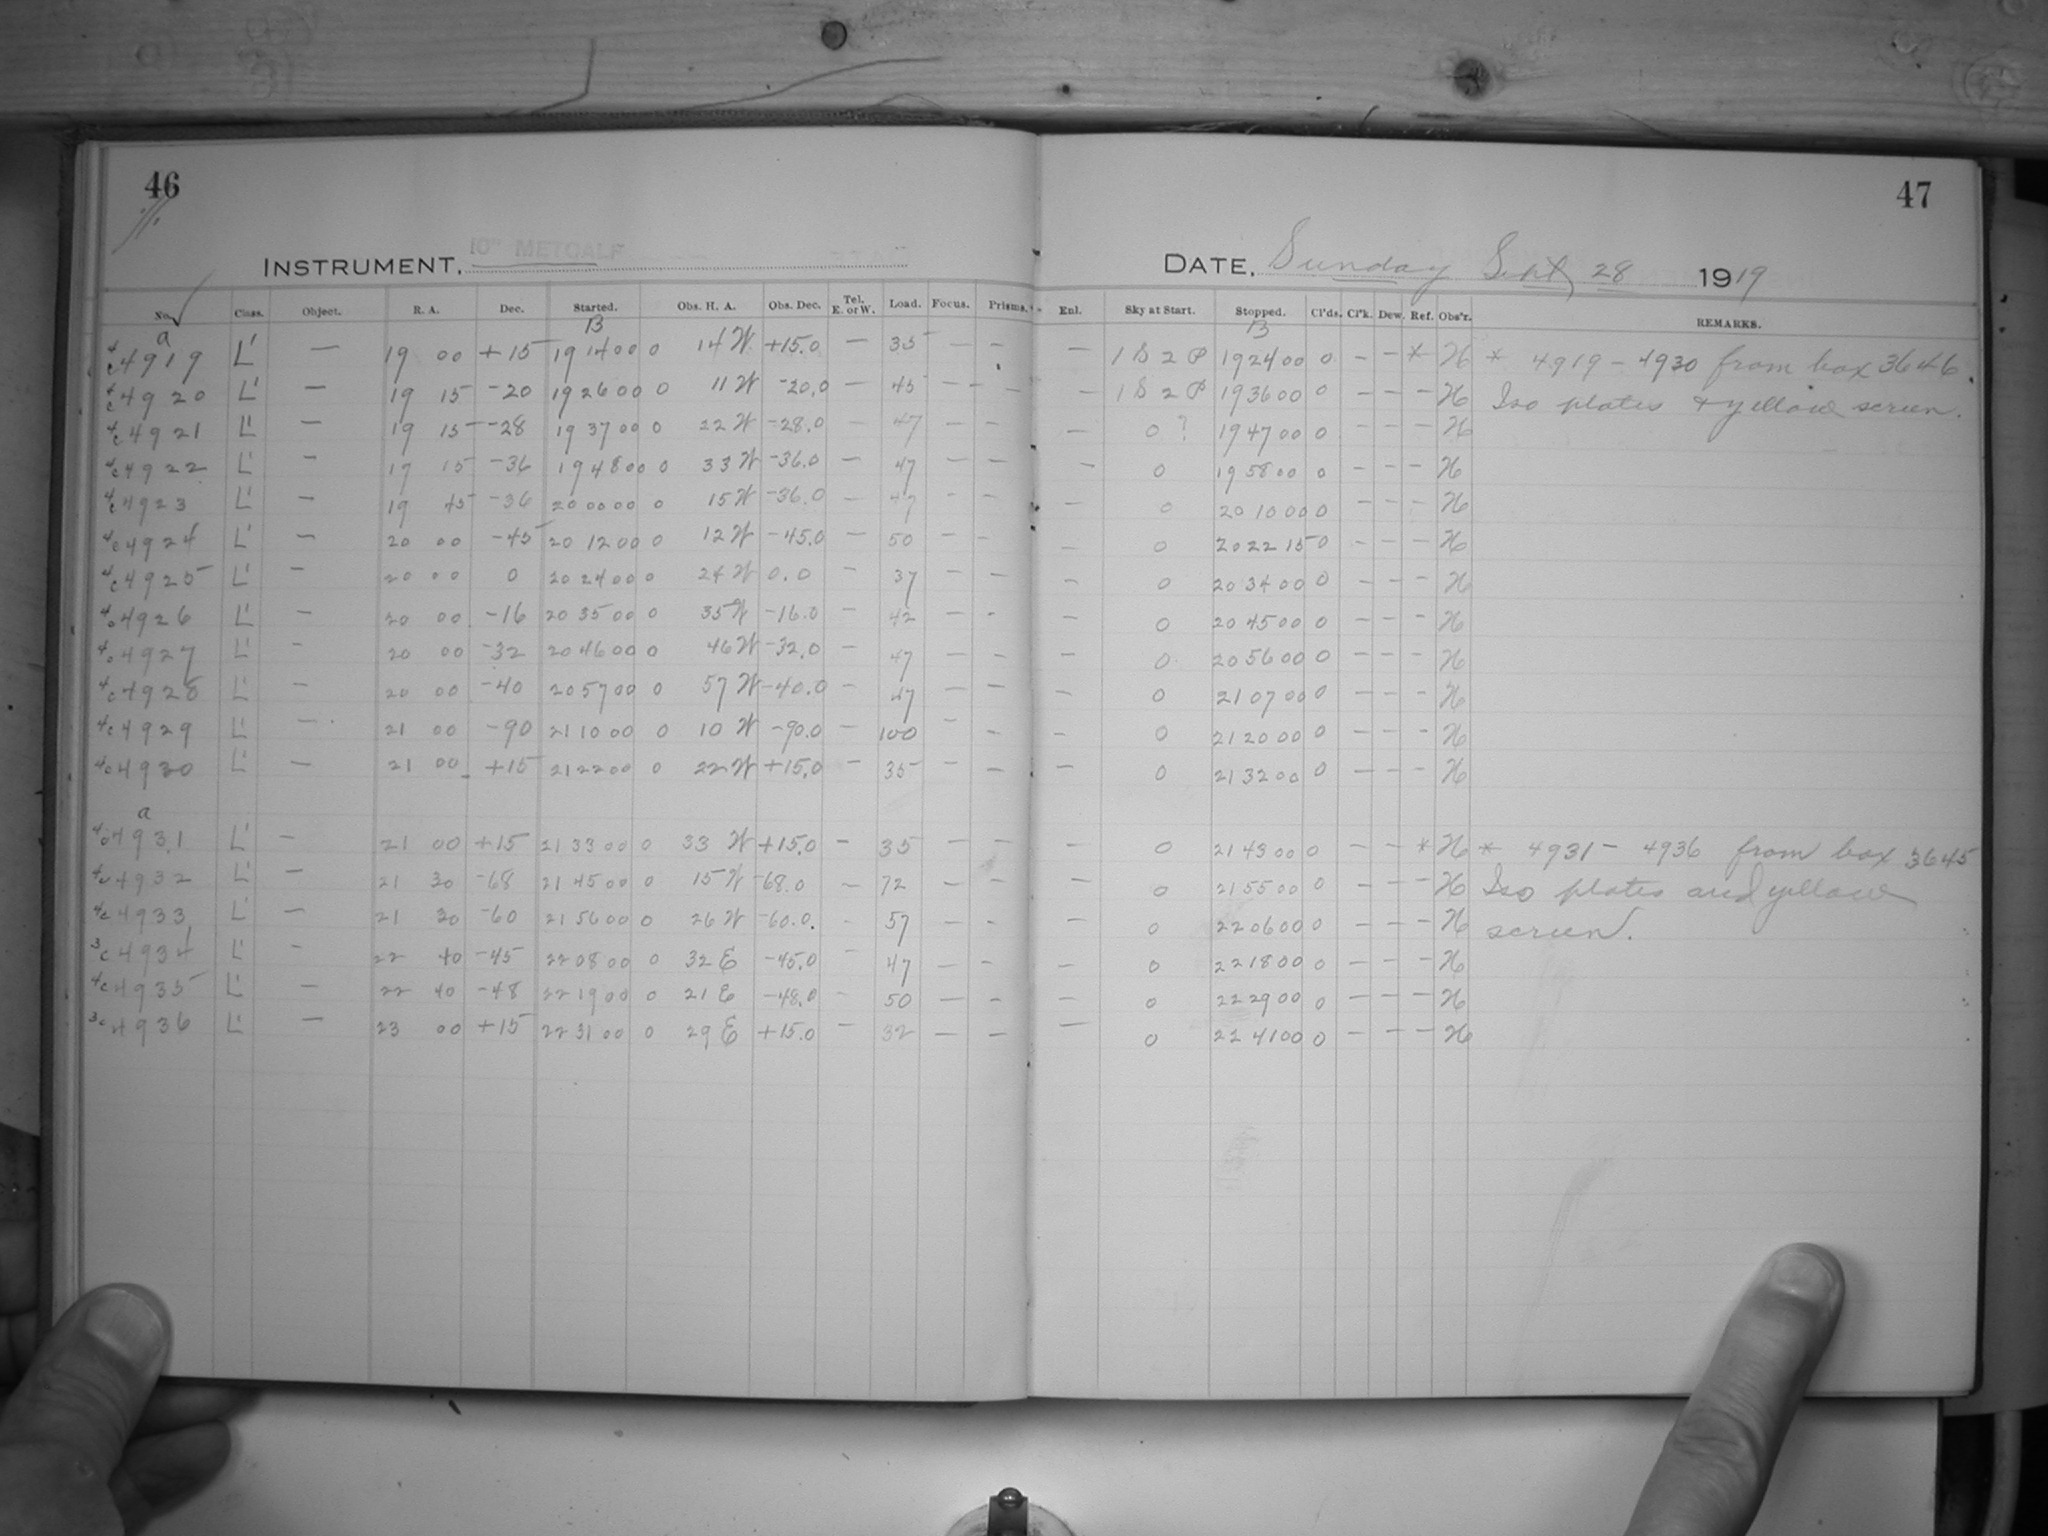 46
47
INSTRUMENT, 10" METCALF
DATE, Sunday Sept 28 1919
No. Class. Object. R. A. Dec. Started. Obs. H. A. Obs. Dec. Tel. E. or W. Load. Focus. Prisms. Enl. Sky at Start. Stopped. Cl'ds. Cl'k. Dew. Ref. Obs'r. REMARKS.
a B B
4919 L' — 19 00 +15 19 14 00 0 14 W +15.0 — 35 — — — 1 S 2 P 19 24 00 0 — — * H * 4919 – 4930 from box 3646.
4920 L' — 19 15 -20 19 26 00 0 11 W -20.0 — 45 — — — 1 S 2 P 19 36 00 0 — — — H Iso plates + yellow screen.
4921 L' — 19 15 -28 19 37 00 0 22 W -28.0 — 47 — — — 0 ? 19 47 00 0 — — — H
4922 L' — 19 15 -36 19 48 00 0 33 W -36.0 — 47 — — — 0 19 58 00 0 — — — H
4923 L' — 19 45 -36 20 00 00 0 15 W -36.0 — 47 — — — 0 20 10 00 0 — — — H
4924 L' — 20 00 -45 20 12 00 0 12 W -45.0 — 50 — — — 0 20 22 15 0 — — — H
4925 L' — 20 00 0 20 24 00 0 24 W 0.0 — 37 — — — 0 20 34 00 0 — — — H
4926 L' — 20 00 -16 20 35 00 0 35 W -16.0 — 42 — — — 0 20 45 00 0 — — — H
4927 L' — 20 00 -32 20 46 00 0 46 W -32.0 — 47 — — — 0 20 56 00 0 — — — H
4928 L' — 20 00 -40 20 57 00 0 57 W -40.0 — 47 — — — 0 21 07 00 0 — — — H
4929 L' — 21 00 -90 21 10 00 0 10 W -90.0 — 100 — — — 0 21 20 00 0 — — — H
4930 L' — 21 00 +15 21 22 00 0 22 W +15.0 — 35 — — — 0 21 32 00 0 — — — H
a
4931 L' — 21 00 +15 21 33 00 0 33 W +15.0 — 35 — — — 0 21 43 00 0 — — * H * 4931 – 4936 from box 3645
4932 L' — 21 30 -68 21 45 00 0 15 W -68.0 — 72 — — — 0 21 55 00 0 — — — H Iso plates and yellow
4933 L' — 21 30 -60 21 56 00 0 26 W -60.0. — 57 — — — 0 22 06 00 0 — — — H screen.
4934 L' — 22 40 -45 22 08 00 0 32 E -45.0 — 47 — — — 0 22 18 00 0 — — — H
4935 L' — 22 40 -48 22 19 00 0 21 E -48.0 — 50 — — — 0 22 29 00 0 — — — H
4936 L' — 23 00 +15 22 31 00 0 29 E +15.0 — 32 — — — 0 22 41 00 0 — — — H